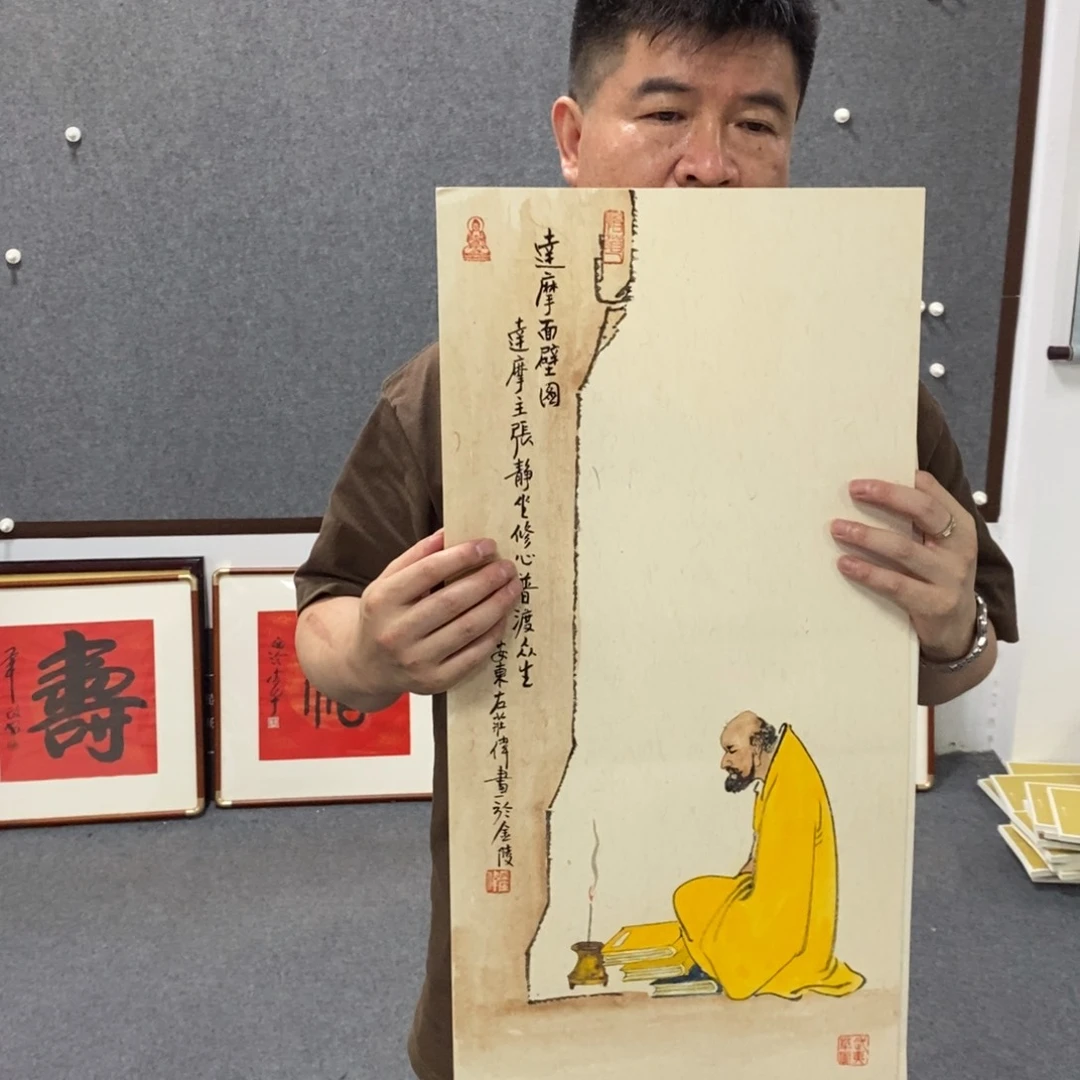 達摩面壁圖
達摩主張靜坐修心普渡众生
安東左莊偉畫於金陵
壽